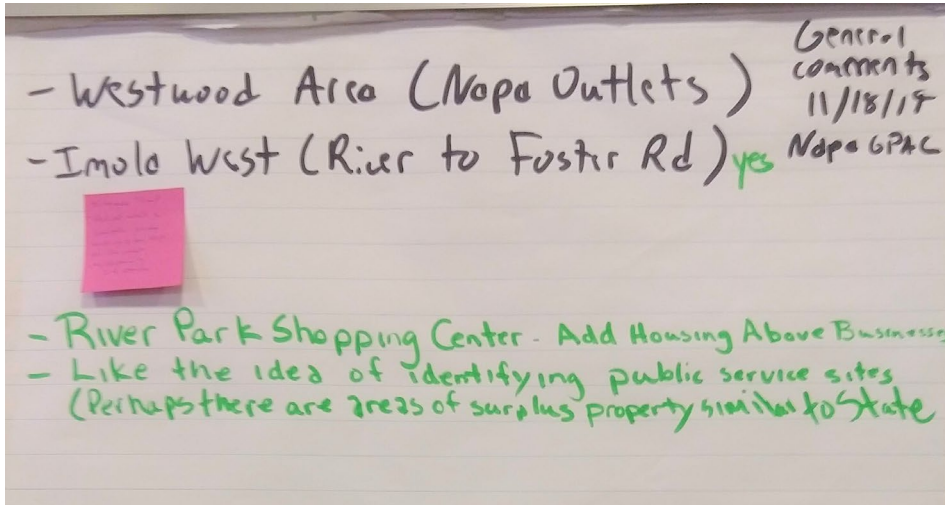 General
comments
11/18/19
Napa GPAC
- Westwood Area (Napa Outlets)
- Imola West (River to Foster Rd) yes
- River Park Shopping Center - Add Housing Above Businesses
- Like the idea of identifying public service sites
(Perhaps there are areas of surplus property similar to State